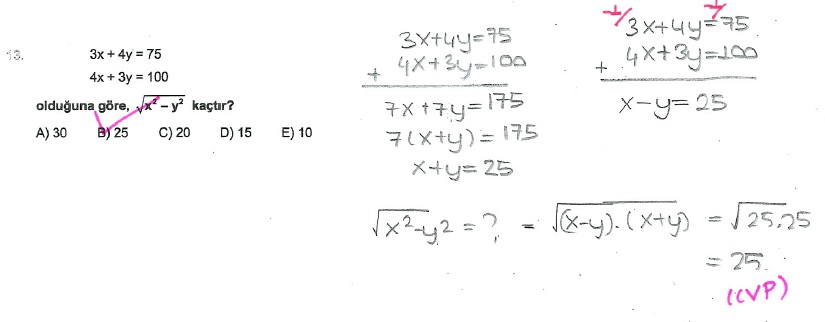 13.
3x + 4y = 75
4x + 3y = 100
olduğuna göre, √x² – y² kaçtır?
A) 30 B) 25 C) 20 D) 15 E) 10
3x+4y=75
+ 4x+3y=100
7x+7y=175
7(x+y)=175
x+y=25
-1/ 3x+4y=75
+ 4x+3y=100
x-y=25
√x²-y² = ? = √(x-y).(x+y) = √25.25
= 25.
(CVP)